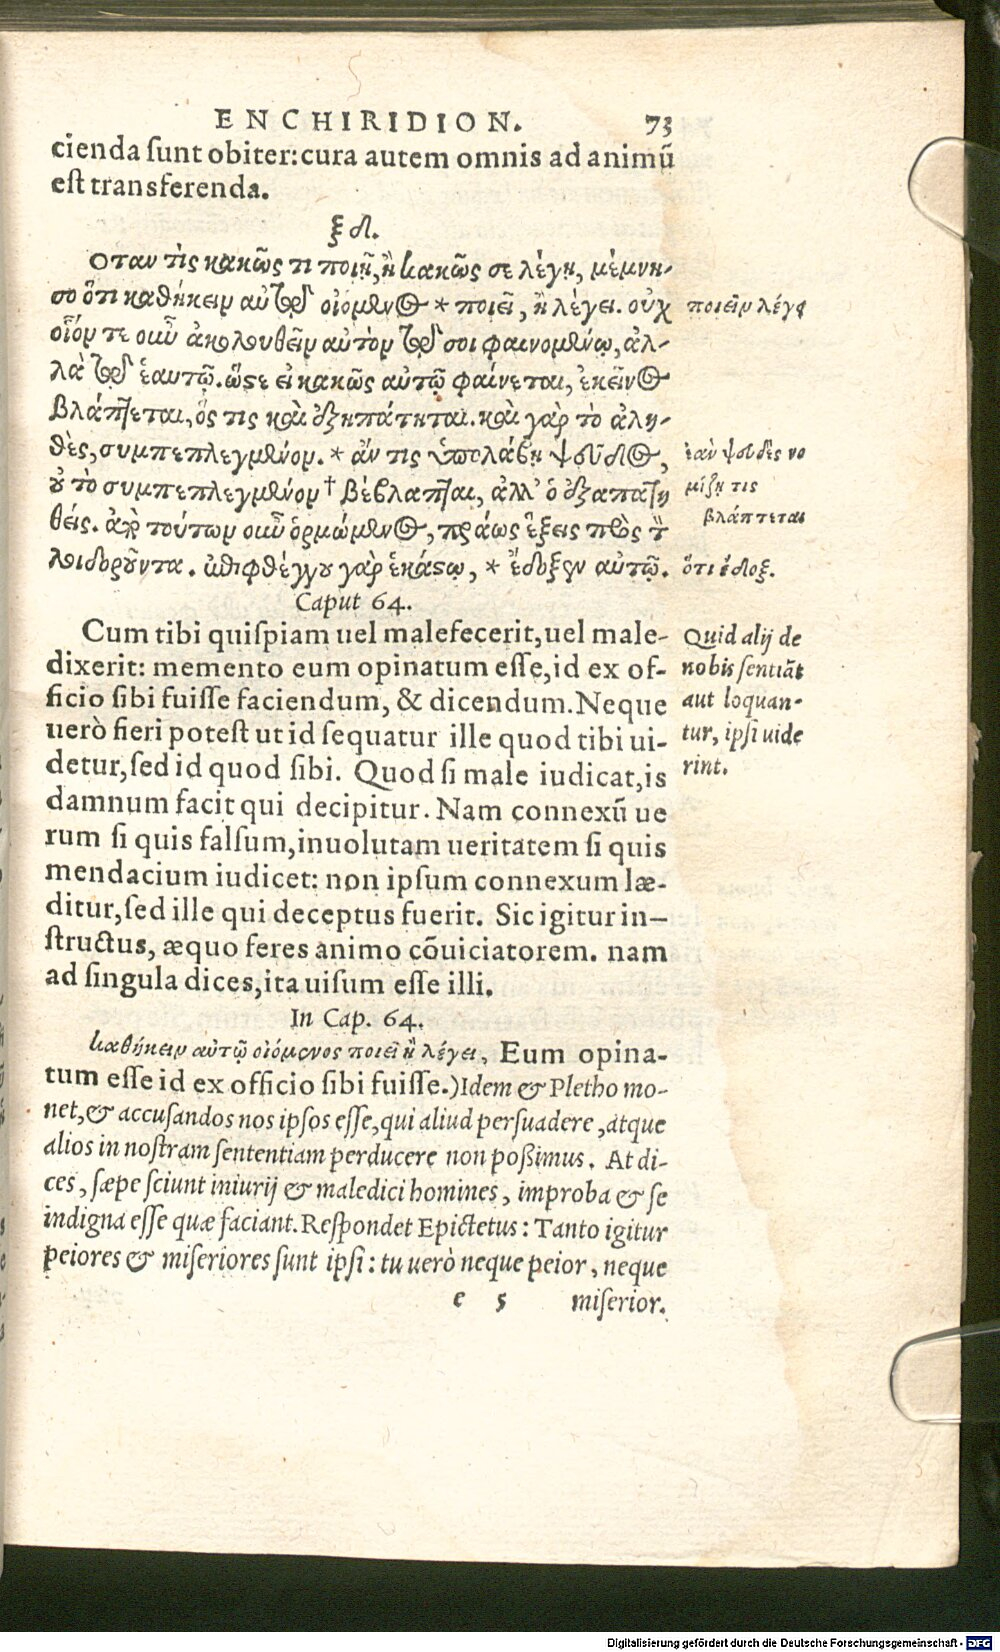 ENCHIRIDION. 73
cienda sunt obiter: cura autem omnis ad animū
est transferenda.
ξδ.
Οταν τὶς κακῶς τι ποιῇ, ἢ κακῶς σε λέγῃ, μέμνη-
σο ὅτι καθήκειν αὐτῷ οἰόμενος * ποιεῖ, ἢ λέγει. οὐχ
οἷόν τε οὖν ἀκολουθεῖν αὐτὸν τῷ σοι φαινομένῳ, ἀλ-
λὰ τῷ ἑαυτῷ. ὥστε εἰ κακῶς αὐτῷ φαίνεται, ἐκεῖνος
βλάπτεται, ὅς τις καὶ ἐξηπάτηται. καὶ γὰρ τὸ ἀλη-
θὲς, συμπεπλεγμένον. * ἄν τις ὑπολάβῃ ψεῦδος,
οὐ τὸ συμπεπλεγμένον† βέβλαπται, ἀλλ' ὁ ἐξαπατη
θείς. ἀπὸ τούτων οὖν ὁρμώμενος, πράως ἕξεις πρὸς τὸν
λοιδοροῦντα. ἐπιφθέγγου γὰρ ἑκάστῳ, * ἔδοξεν αὐτῷ.
ποιεῖν λέγει
ἐὰν ψευδὲς νο
μίζῃ τις
βλάπτεται
ὅτι ἔδοξ.
Caput 64.
Cum tibi quispiam uel malefecerit, uel male-
dixerit: memento eum opinatum esse, id ex of-
ficio sibi fuisse faciendum, & dicendum. Neque
uerò fieri potest ut id sequatur ille quod tibi ui-
detur, sed id quod sibi. Quod si male iudicat, is
damnum facit qui decipitur. Nam connexū ue
rum si quis falsum, inuolutam ueritatem si quis
mendacium iudicet: non ipsum connexum læ-
ditur, sed ille qui deceptus fuerit. Sic igitur in-
structus, æquo feres animo cōuiciatorem. nam
ad singula dices, ita uisum esse illi.
Quid alij de
nobis sentiāt
aut loquan-
tur, ipsi uide
rint.
In Cap. 64.
καθήκειν αὐτῷ οἰόμενος ποιεῖ ἢ λέγει, Eum opina-
tum esse id ex officio sibi fuisse.) Idem & Pletho mo-
net, & accusandos nos ipsos esse, qui aliud persuadere, atque
alios in nostram sententiam perducere non possimus. At di-
ces, sæpe sciunt iniurij & maledici homines, improba & se
indigna esse quæ faciant. Respondet Epictetus: Tanto igitur
peiores & miseriores sunt ipsi: tu uerò neque peior, neque
e 5 miserior.
Digitalisierung gefördert durch die Deutsche Forschungsgemeinschaft - DFG